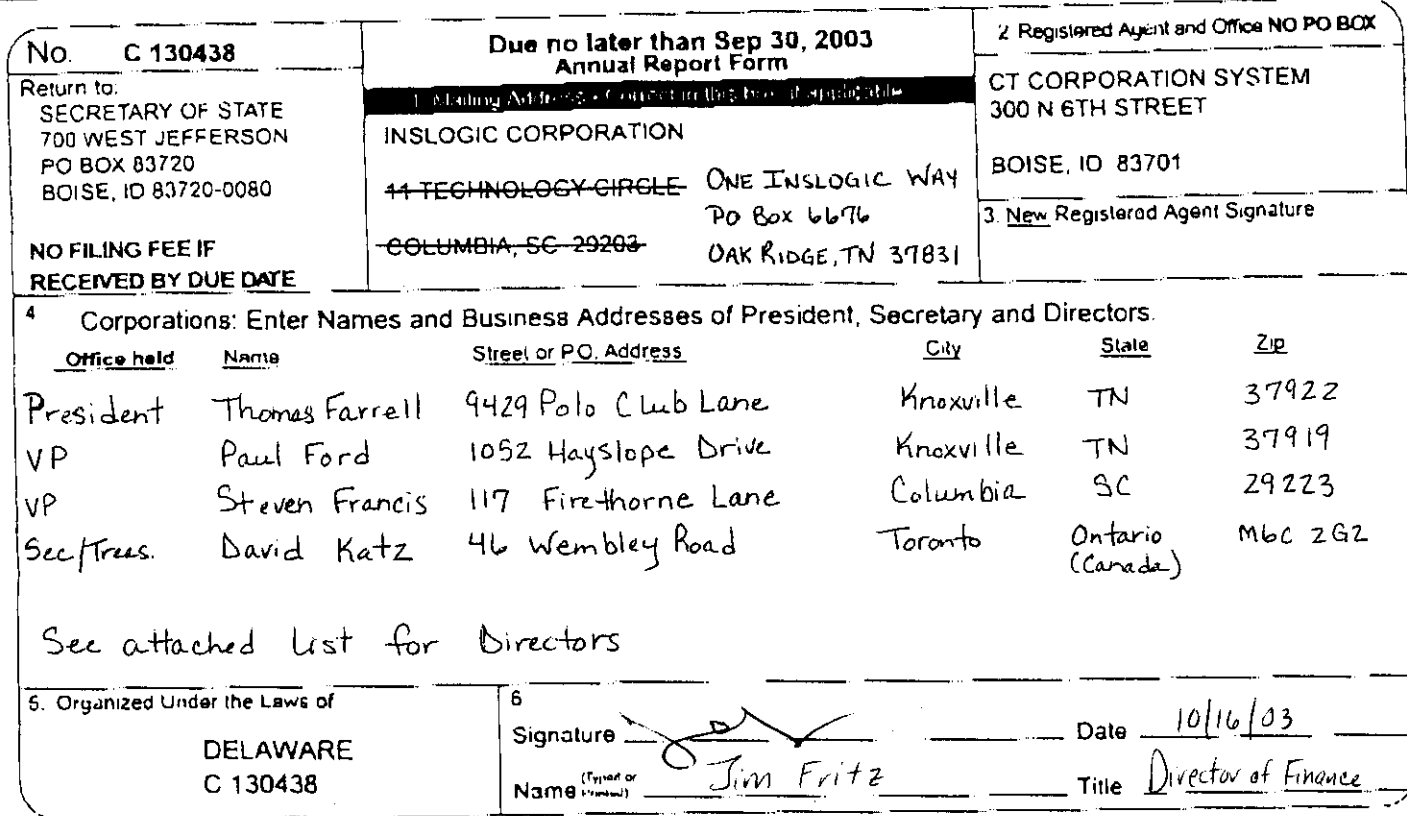 No. C 130438
Return to:
SECRETARY OF STATE
700 WEST JEFFERSON
PO BOX 83720
BOISE, ID 83720-0080
NO FILING FEE IF
RECEIVED BY DUE DATE
Due no later than Sep 30, 2003
Annual Report Form
1. Mailing Address - Correct in this box, if applicable
INSLOGIC CORPORATION
11 TECHNOLOGY CIRCLE ONE INSLOGIC WAY
PO Box 6676
COLUMBIA, SC 29203 OAK RIDGE, TN 37831
2 Registered Agent and Office NO PO BOX
CT CORPORATION SYSTEM
300 N 6TH STREET
BOISE, ID 83701
3. New Registered Agent Signature
4 Corporations: Enter Names and Business Addresses of President, Secretary and Directors.
Office held Name Street or P.O. Address City State Zip
President Thomas Farrell 9429 Polo Club Lane Knoxville TN 37922
VP Paul Ford 1052 Hayslope Drive Knoxville TN 37919
VP Steven Francis 117 Firethorne Lane Columbia SC 29223
Sec/Treas. David Katz 46 Wembley Road Toronto Ontario M6C 2G2
(Canada)
See attached list for Directors
5. Organized Under the Laws of
DELAWARE
C 130438
6
Signature Date 10/16/03
Name (Typed or Printed) Jim Fritz Title Director of Finance